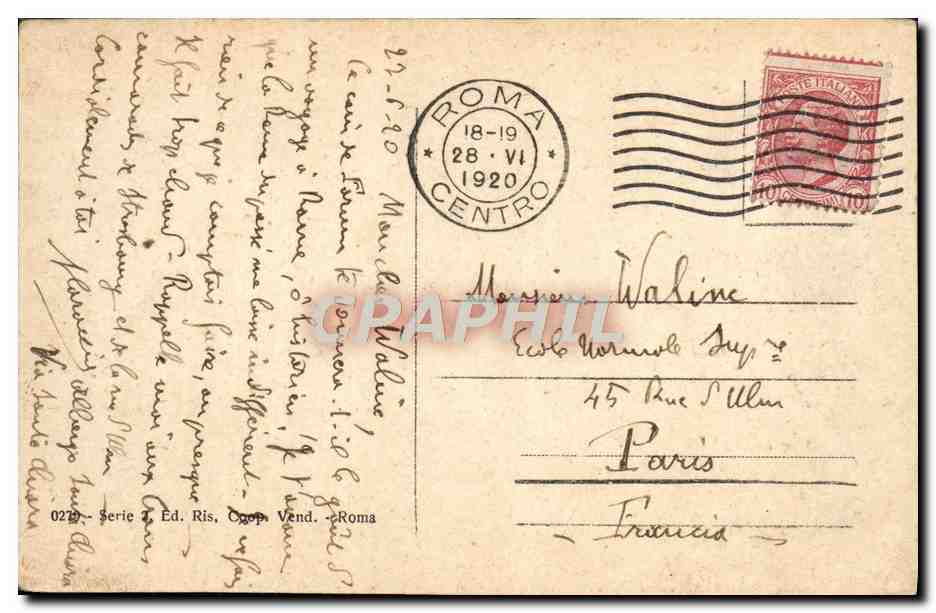 27-6-20 Mon cher Waline,
Ce coin de Forum te donnera-t-il le goût d'
un voyage à Rome, ô historien ? Je t'avoue
que la Rome du passé me laisse indifférent - Je ne fais
rien de ce que je comptais faire, ou presque
Il fait trop chaud - Rappelle moi aux bons
camarades de Strasbourg et de la rue d'Ulm
Cordialement à toi
albergo Santa Chiara
Via Santa Chiara
ROMA
18-19
28 · VI
1920
CENTRO
POSTE ITALIANE
10 10
Monsieur Waline
Ecole Normale Supre
45 Rue d'Ulm
Paris
- Francia -
CPAPHIL
0279 - Serie 2, Ed. Ris, Coop. Vend. - Roma